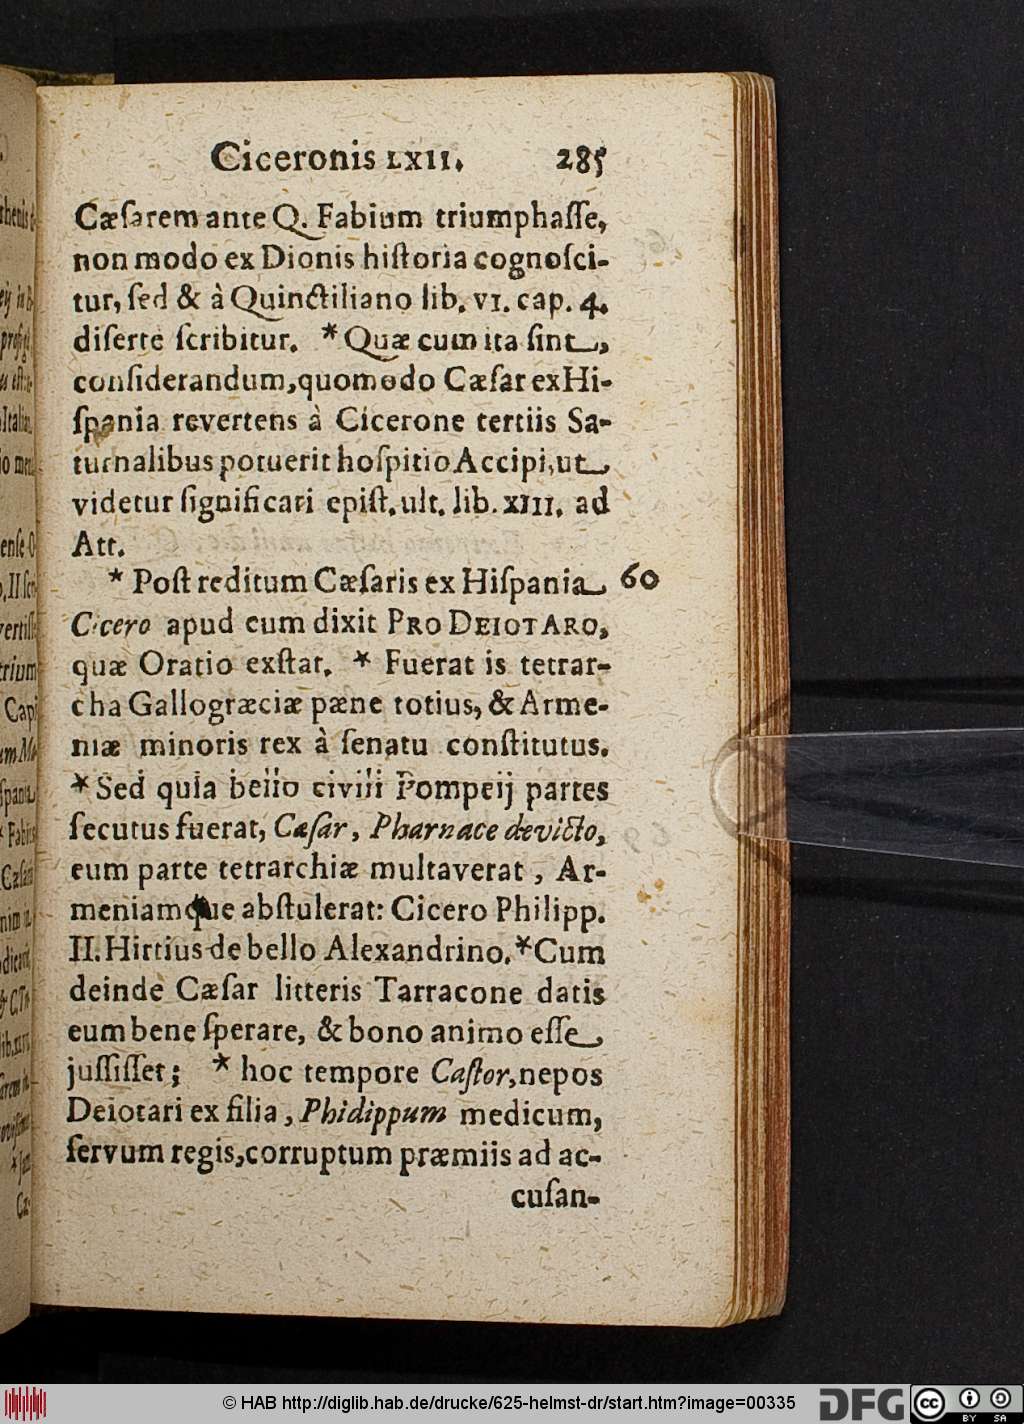 Ciceronis LXII. 285
Cæſarem ante Q. Fabium triumphaſſe,
non modo ex Dionis hiſtoria cognoſci-
tur, ſed & à Quinctiliano lib. VI. cap. 4.
diſerte ſcribitur. * Quæ cum ita ſint,
conſiderandum, quomodo Cæſar ex Hi-
ſpania revertens à Cicerone tertiis Sa-
turnalibus potuerit hoſpitio Accipi, ut
videtur ſignificari epiſt. ult. lib. XIII. ad
Att.
* Poſt reditum Cæſaris ex Hiſpania 60
Cicero apud eum dixit PRO DEIOTARO,
quæ Oratio exſtat. * Fuerat is tetrar-
cha Gallogræciæ pæne totius, & Arme-
niæ minoris rex à ſenatu conſtitutus.
* Sed quia bello civili Pompeij partes
ſecutus fuerat, Cæſar, Pharnace devicto,
eum parte tetrarchiæ multaverat, Ar-
meniamque abſtulerat: Cicero Philipp.
II. Hirtius de bello Alexandrino. * Cum
deinde Cæſar litteris Tarracone datis
eum bene ſperare, & bono animo eſſe
juſſiſſet; * hoc tempore Caſtor, nepos
Deiotari ex filia, Phidippum medicum,
ſervum regis, corruptum præmiis ad ac-
cuſan-
© HAB http://diglib.hab.de/drucke/625-helmst-dr/start.htm?image=00335
DFG
cc BY SA